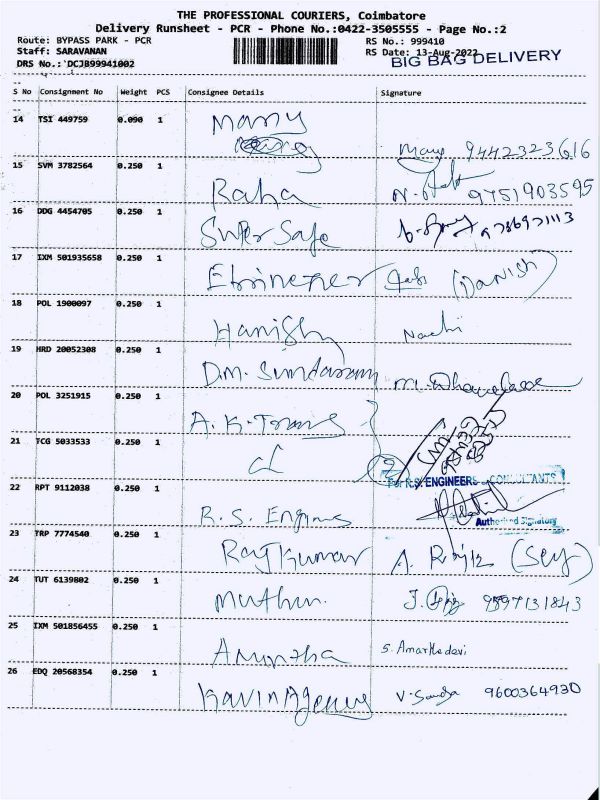 THE PROFESSIONAL COURIERS, Coimbatore
Delivery Runsheet - PCR - Phone No.:0422-3505555 - Page No.:2
Route: BYPASS PARK - PCR RS No.: 999410
Staff: SARAVANAN RS Date: 13-Aug-2022
DRS No.: DCJB99941002 BIG BAG DELIVERY
S No Consignment No Weight PCS Consignee Details Signature
14 TSI 449759 0.090 1 Many
9442323616
15 SVM 3782564 0.250 1 Raha
9751903595
16 DDG 4454705 0.250 1 Super Safe 9786971113
17 IXM 501935658 0.250 1 (DANISH)
18 POL 1900097 0.250 1 Hanish
19 HRD 20052308 0.250 1 D.M. Sundaram
20 POL 3251915 0.250 1 A.K. Trans
21 TCG 5033533 0.250 1
For R.S. ENGINEERS CONSULTANTS
22 RPT 9112038 0.250 1 R.S. Engines
Authorised Signatory
23 TRP 7774540 0.250 1 Rajkumar
24 TUT 6139802 0.250 1 Muthu
25 IXM 501856455 0.250 1 S. Amarthadevi
26 EDQ 20568354 0.250 1 Kavin Agency 9600364930